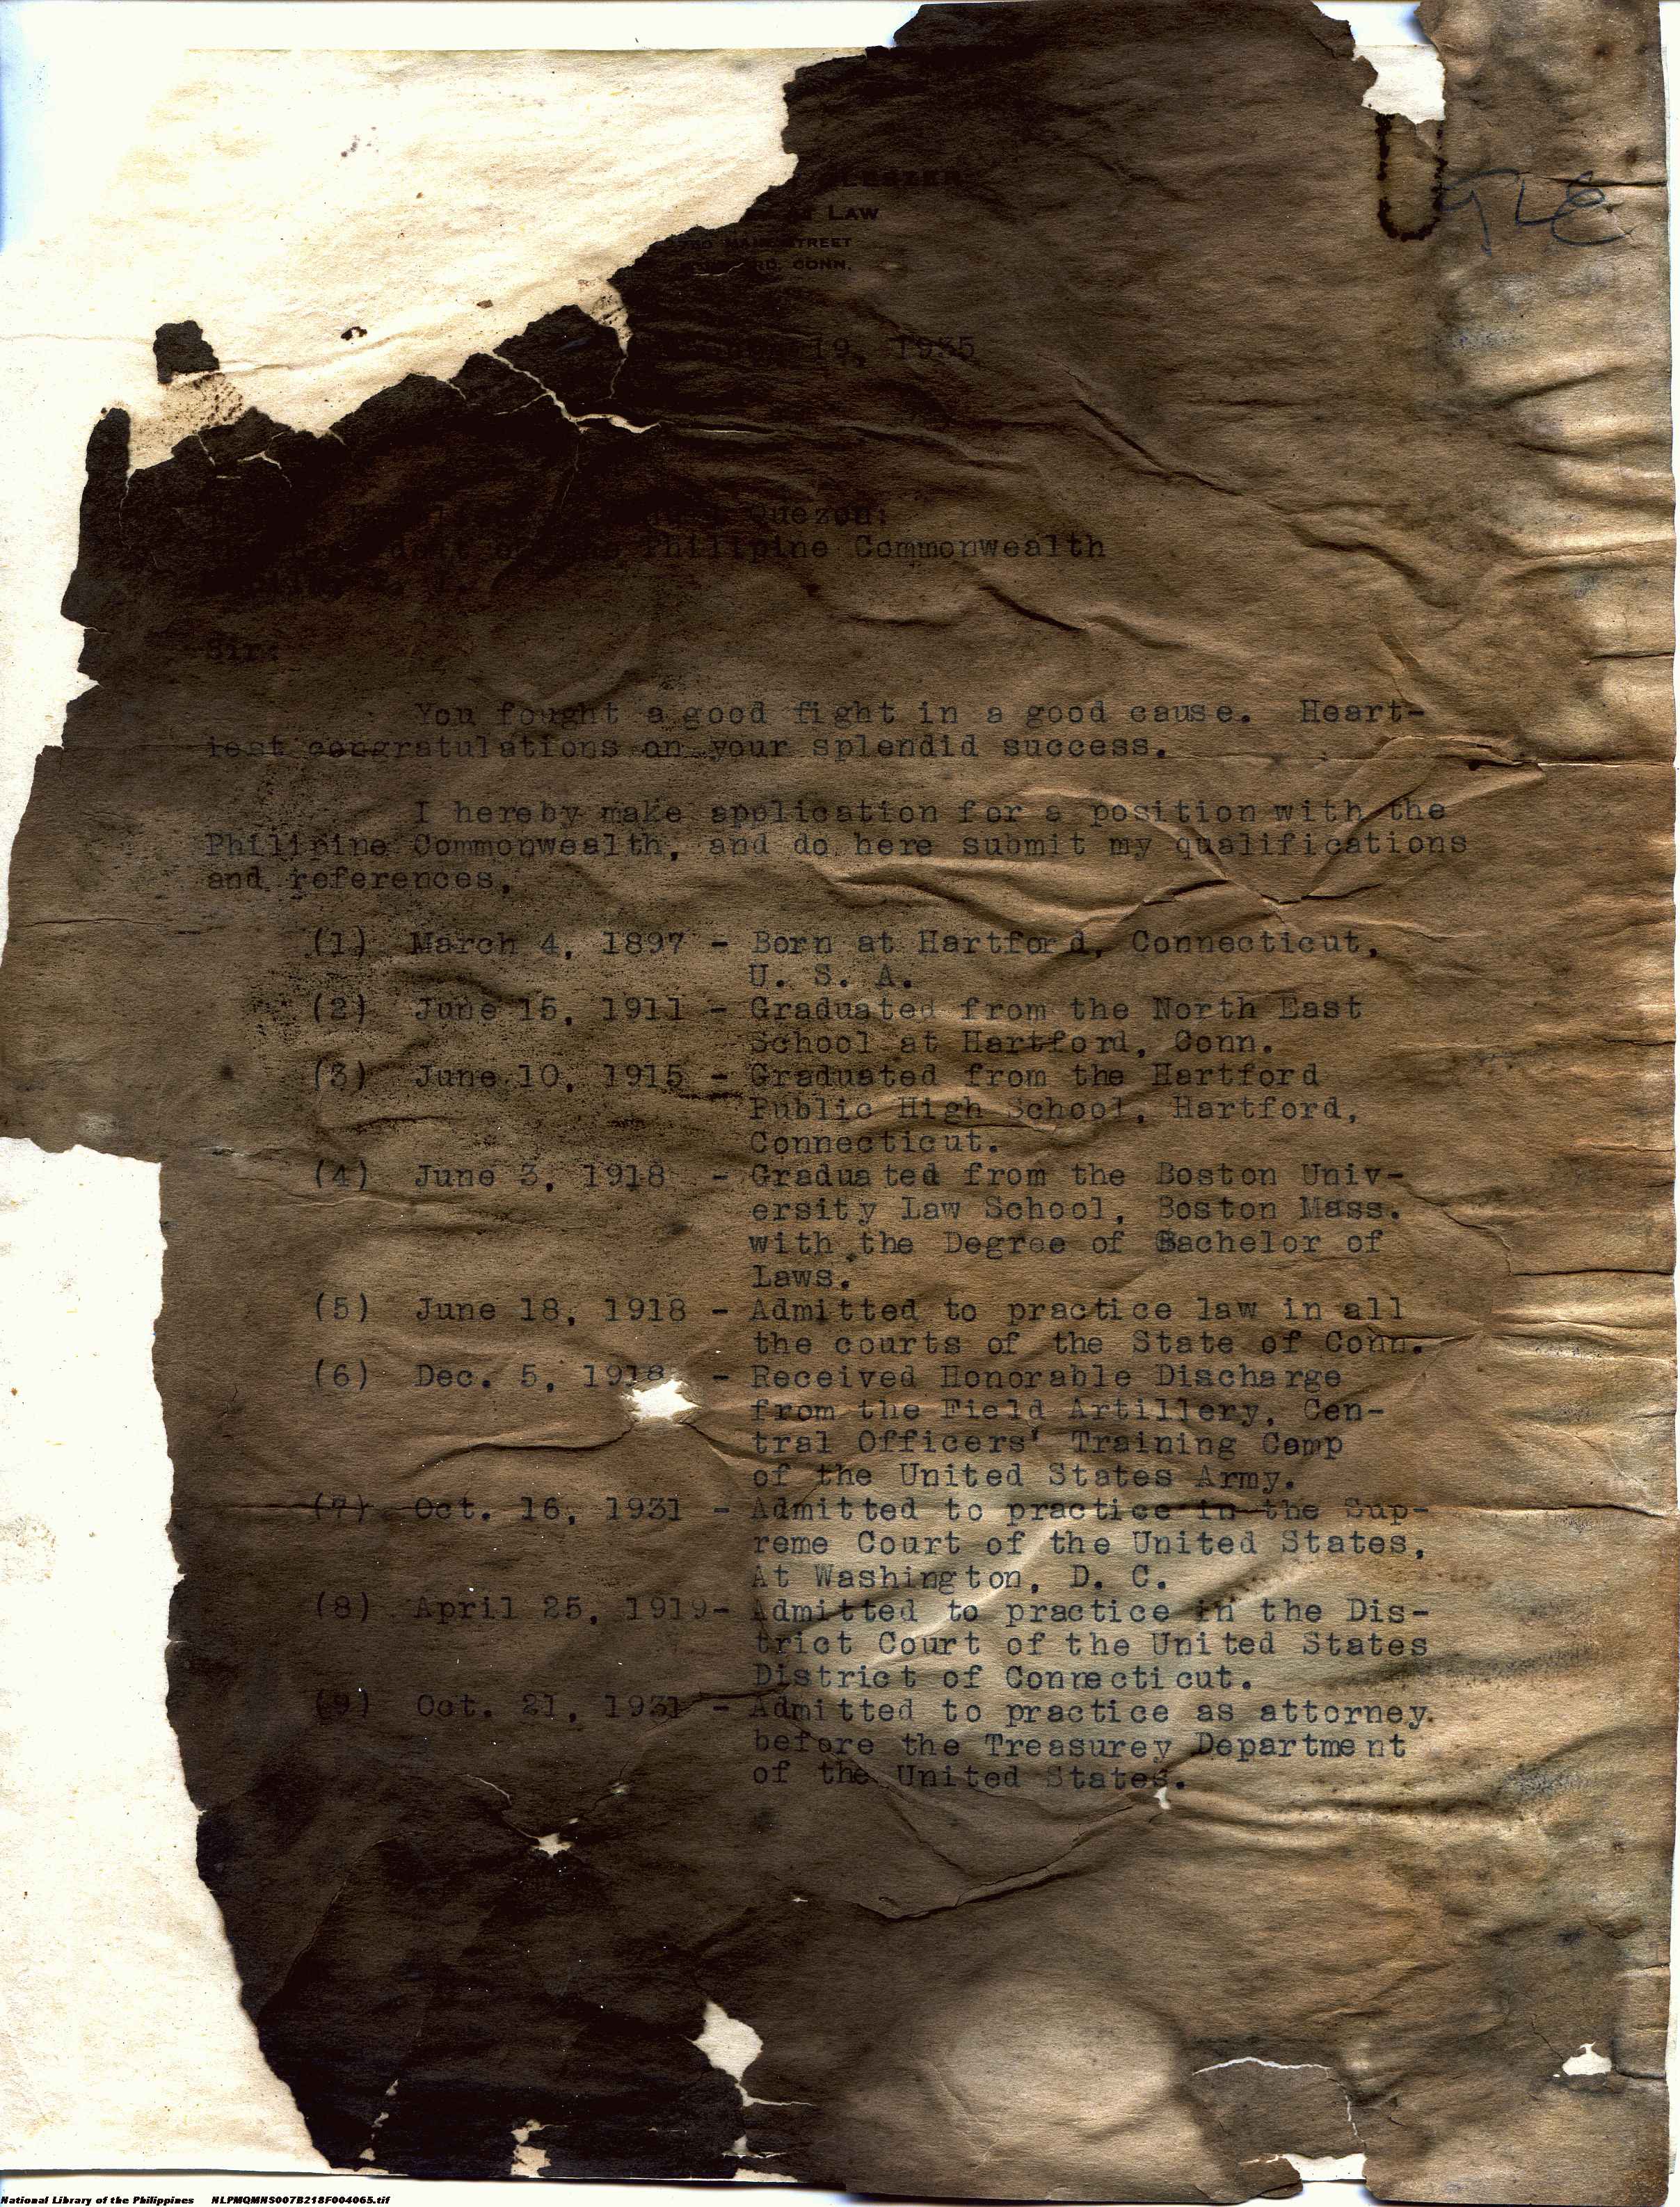 LAW
STREET
CONN.
19, 1935
Quezon:
Philipine Commonwealth
Sir:
You fought a good fight in a good cause. Heart-
iest congratulations on your splendid success.
I hereby make application for a position with the
Philipine Commonwealth, and do here submit my qualifications
and references,
(1) March 4, 1897 - Born at Hartford, Connecticut,
U. S. A.
(2) June 15, 1911 - Graduated from the North East
School at Hartford, Conn.
(3) June 10, 1915 - Graduated from the Hartford
Public High School, Hartford,
Connecticut.
(4) June 3, 1918 - Graduated from the Boston Univ-
ersity Law School, Boston Mass.
with the Degree of Bachelor of
Laws.
(5) June 18, 1918 - Admitted to practice law in all
the courts of the State of Conn.
(6) Dec. 5, 1918 - Received Honorable Discharge
from the Field Artillery, Cen-
tral Officers' Training Camp
of the United States Army.
(7) Oct. 16, 1931 - Admitted to practice in the Sup-
reme Court of the United States,
At Washington, D. C.
(8) April 25, 1919- Admitted to practice in the Dis-
trict Court of the United States
District of Connecticut.
(9) Oct. 21, 1931 - Admitted to practice as attorney
before the Treasurey Department
of the United States.
National Library of the Philippines NLPMQMNS007B218F004065.tif